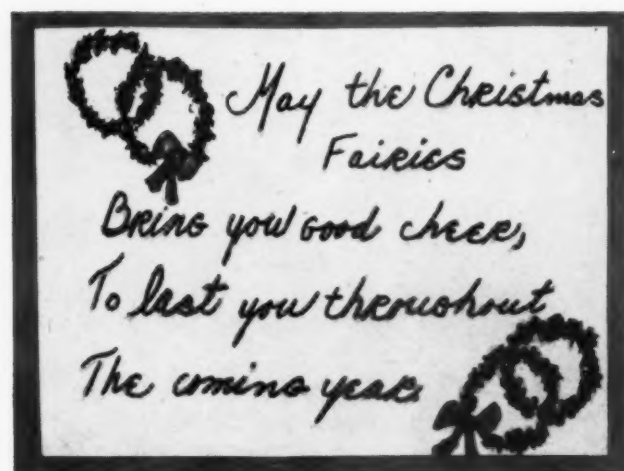 May the Christmas
Fairies
Bring you good cheer,
To last you throughout
The coming year.